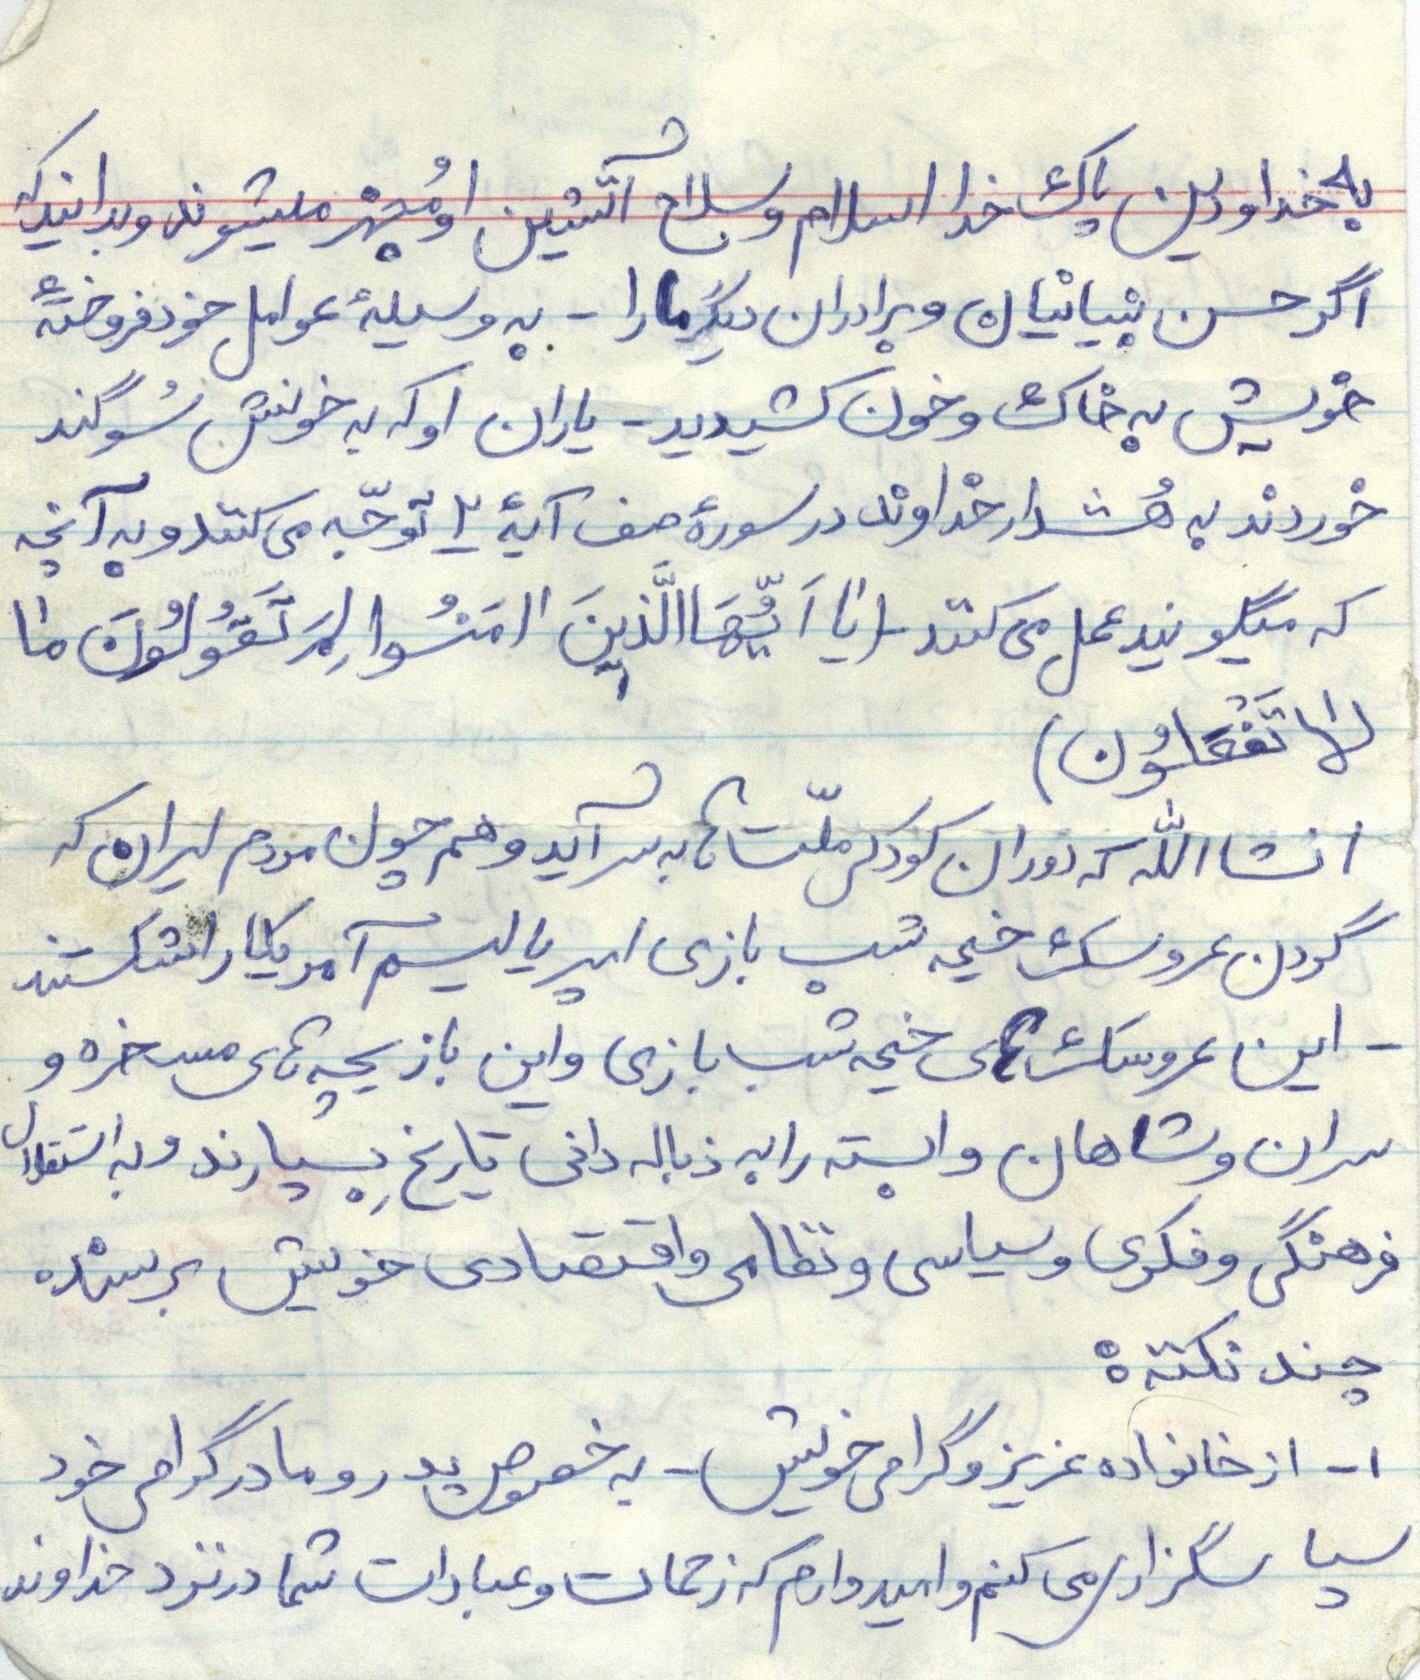 به خدا و دین پاک خدا اسلام و سلاح آتشین او مُجهّز میشوند و بدانید که
اگر حسن بنیانیان و برادران دیگر ما را - به وسیلهٔ عوامل خود فروختهٔ
خویش به خاک و خون کشیدید - یاران او که به خونش سُوگند
خوردند به هُشدار خداوند در سورهٔ صف آیهٔ ۲ توجّه می کنند و به آنچه
که میگویند عمل می کنند - (یا اَیُّهَا الَّذینَ امَنُوا لِمَ تَقُولُونَ ما
لا تَفْعَلُون)
انشاالله که دوران کودکی ملّت ها به سر آید و هم چون مردم ایران که
گردن عروسک خیمه شب بازی امپریالیسم آمریکا را شکستند
- این عروسک های خیمه شب بازی و این بازیچه های مسخره و
سران و شاهان وابسته را به زباله دانی تاریخ بِسپارند و به استقلال
فرهنگی و فکری و سیاسی و نظامی و اقتصادی خویش برسند ه
چند نکته ه
۱- از خانواده عزیز و گرامی خویش - به خصوص پدر و مادر گرامی خود
سپاسگزاری می کنم و امیدوارم که زحمات و عبادات شما در نزد خداوند